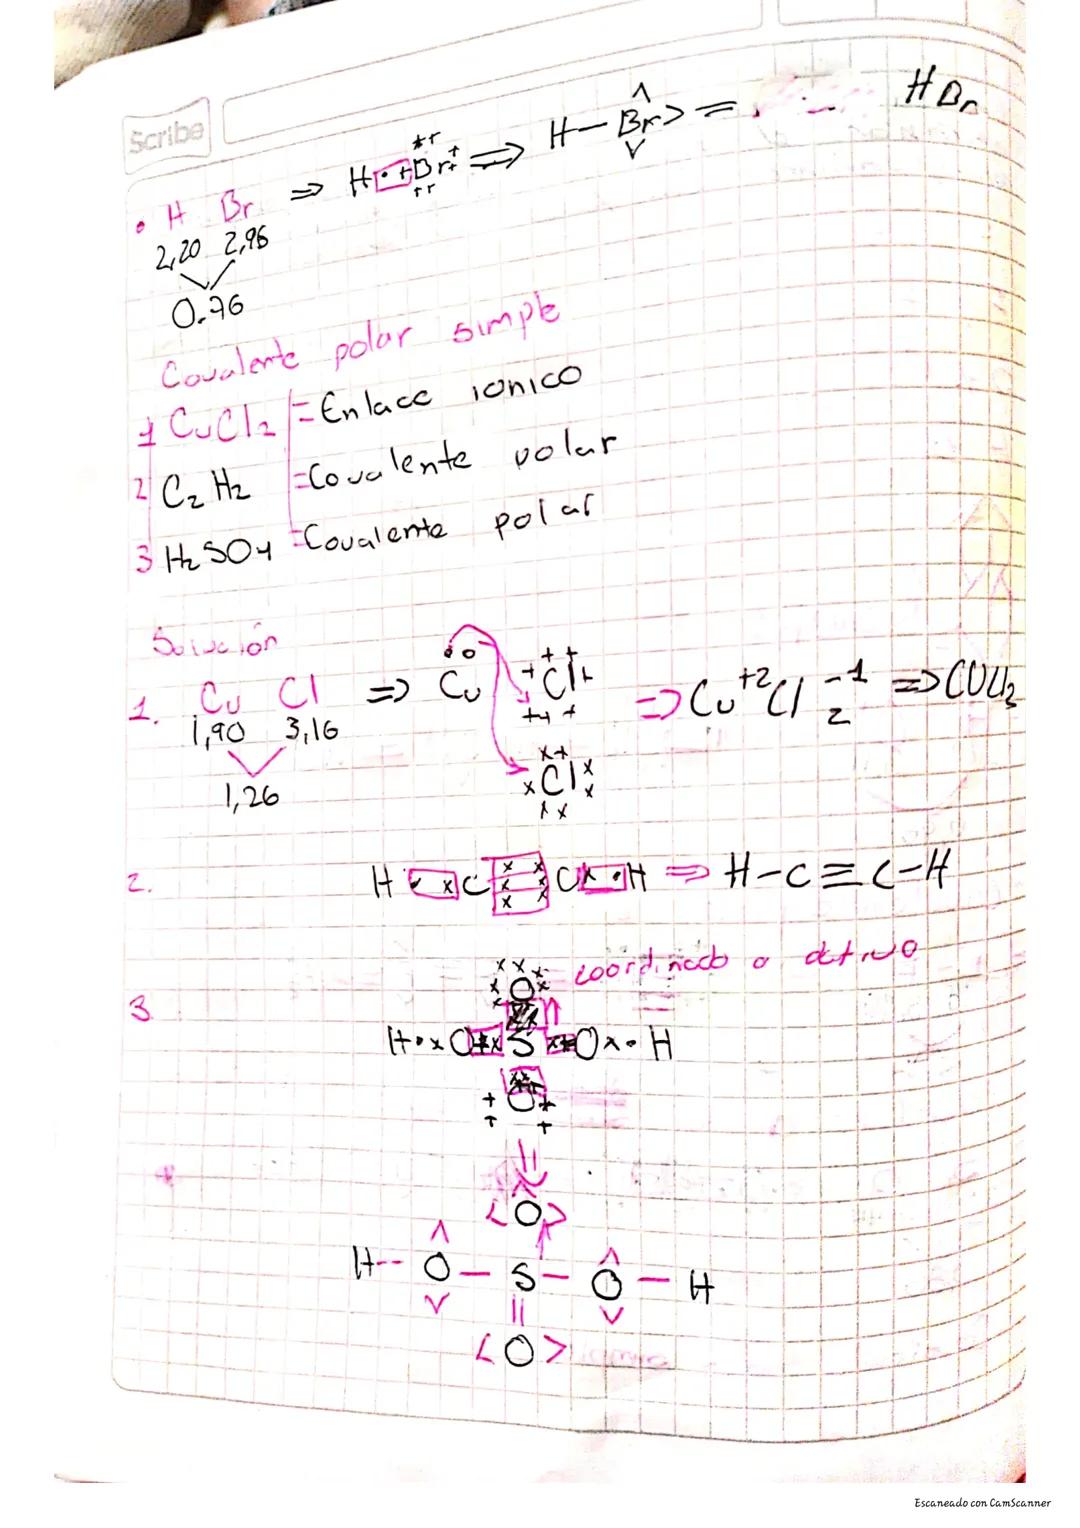 Scribe
• H Br ⇒ H·+Br ⇒ H–Br = HBr
2,20 2,96
0.76
Covalente polar simple
1 CuCl2 = Enlace ionico
2 C2H2 = Covalente polar
3 H2SO4 = Covalente polar
Solución
1. Cu Cl ⇒ Cu Cl ⇒ Cu+2Cl2-1 ⇒ CUCl2
1,90 3,16
Cl
1,26
2. H · x C xxxxxx C x · H ⇒ H–C≡C–H
coordinado o dativo
3 O
H·xO+xS x+Ox·H
O
O
H-- O – S – O – H
O
Escaneado con CamScanner